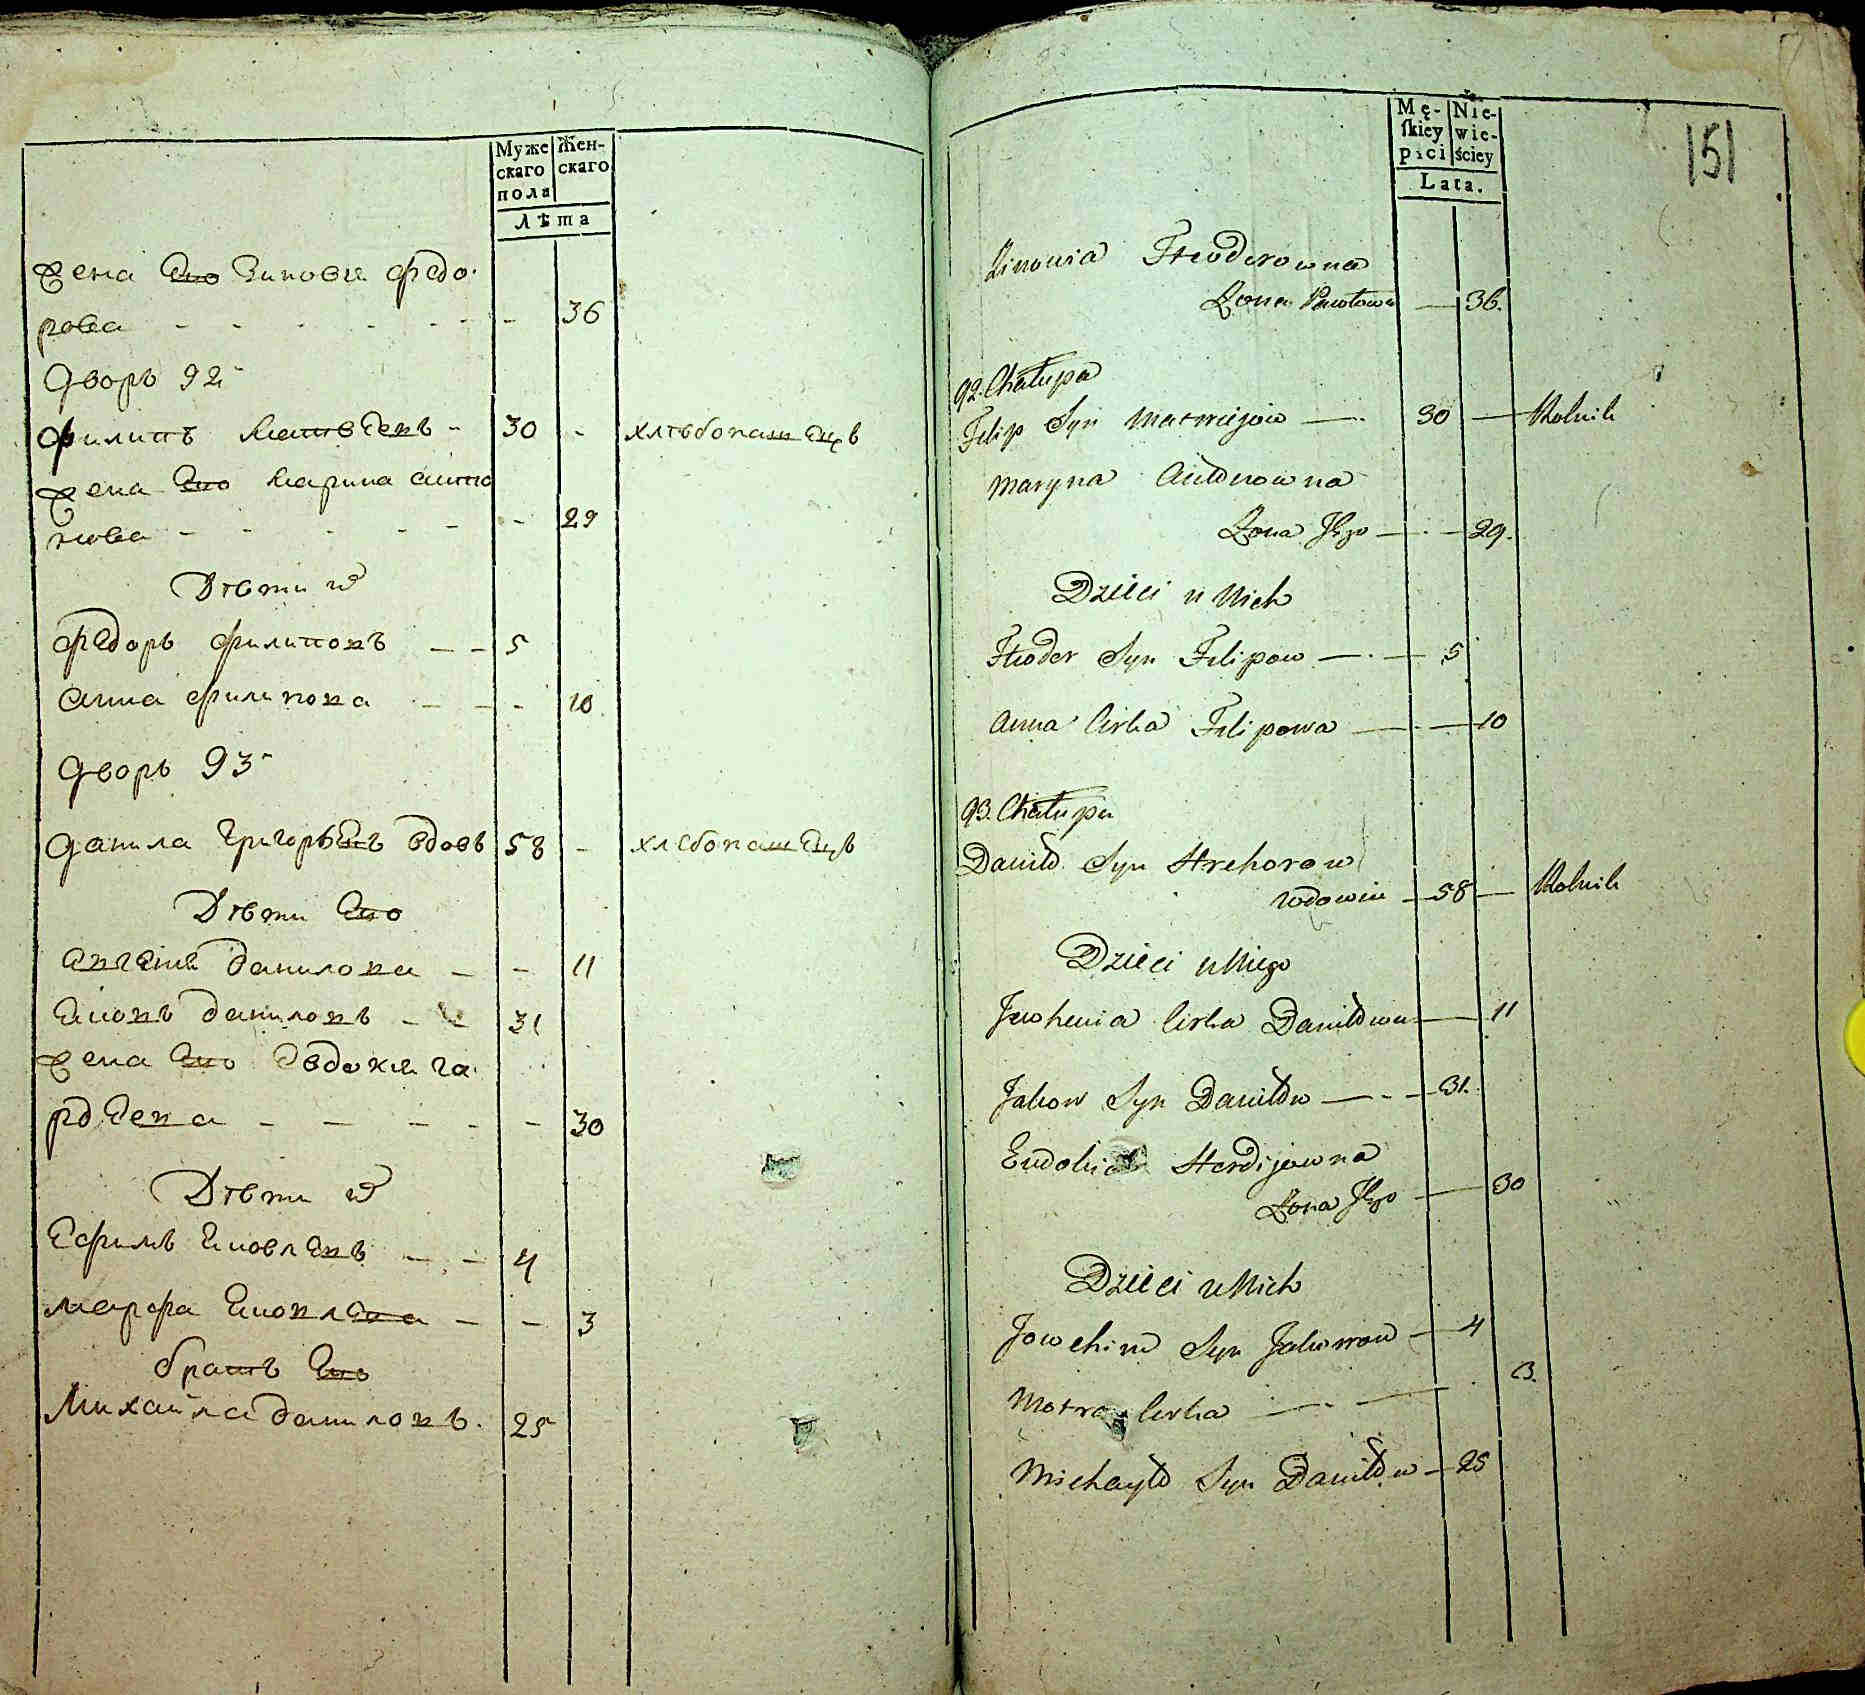 Муже
скаго
пола
Жен-
скаго
лѣта
жена его Зиновия Федо
рова - - - - - - - 36
дворъ 92
Филипъ Матвеевъ - 30 - хлѣбопашецъ
жена его Марина Анто
нова - - - - - - 29
Дѣти их
Федоръ Филиповъ - - 5
Анна Филипова - - - 10
дворъ 93
Данила Григорьевъ вдовъ 58 - хлебопашецъ
Дѣти его
Данилова - - 11
Яковъ Даниловъ - - 31
жена его Евдокия Га
рдеева - - - - - - 30
Дѣти их
Ефимъ Яковлевъ - - 4
Марфа Яковлева - - 3
братъ его
Михайла Даниловъ. 25
Mę-
skiey
płci
Nie-
wie-
ściey
Lata.
151
Zinowia Fteodorowna
Żona Pawłowa — 36.
92. Chałupa
Filip Syn Matwiejow — 30 — Rolnik
Maryna Antonowna
Żona Jego — - — 29.
Dzieci u Nich
Fteodor Syn Filipow — - — 5
Anna Cirka Filipowa — - — 10
93. Chałupa
Daniło Syn Hrehorow
Wdowiec — 58 — Rolnik
Dzieci u Niego
Jewhenia Cirka Daniłowa — 11
Jakow Syn Daniłow — - - 31.
Eudokia Hordijowna
Żona Jego — 30
Dzieci u Nich
Jowchim Syn Jakowow — 4
Motra Cirka — - — 3.
Michayło Syn Daniłow — 25